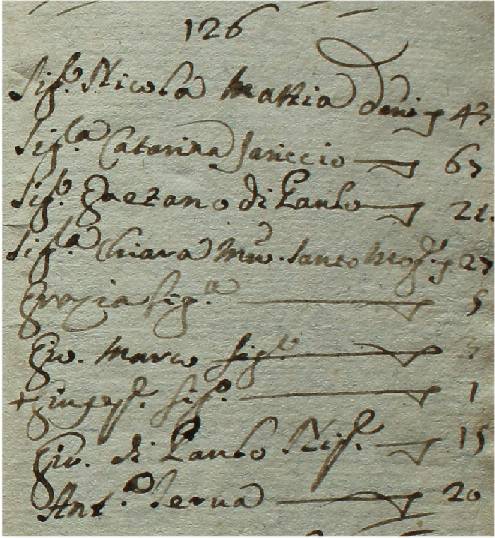 126
Sig.r Nicola Mattia d'anni 43
Sig.ra Catarina Jariccio 63
Sig.r Gaetano di Paulo 21
Sig.ra Chiara Santo 27
Grazia fig.a 5
Gio. Marco fig.o 3
+ Giusep. fig.o 1
Gio. di Paulo Nip. 15
Ant.a Serva 20